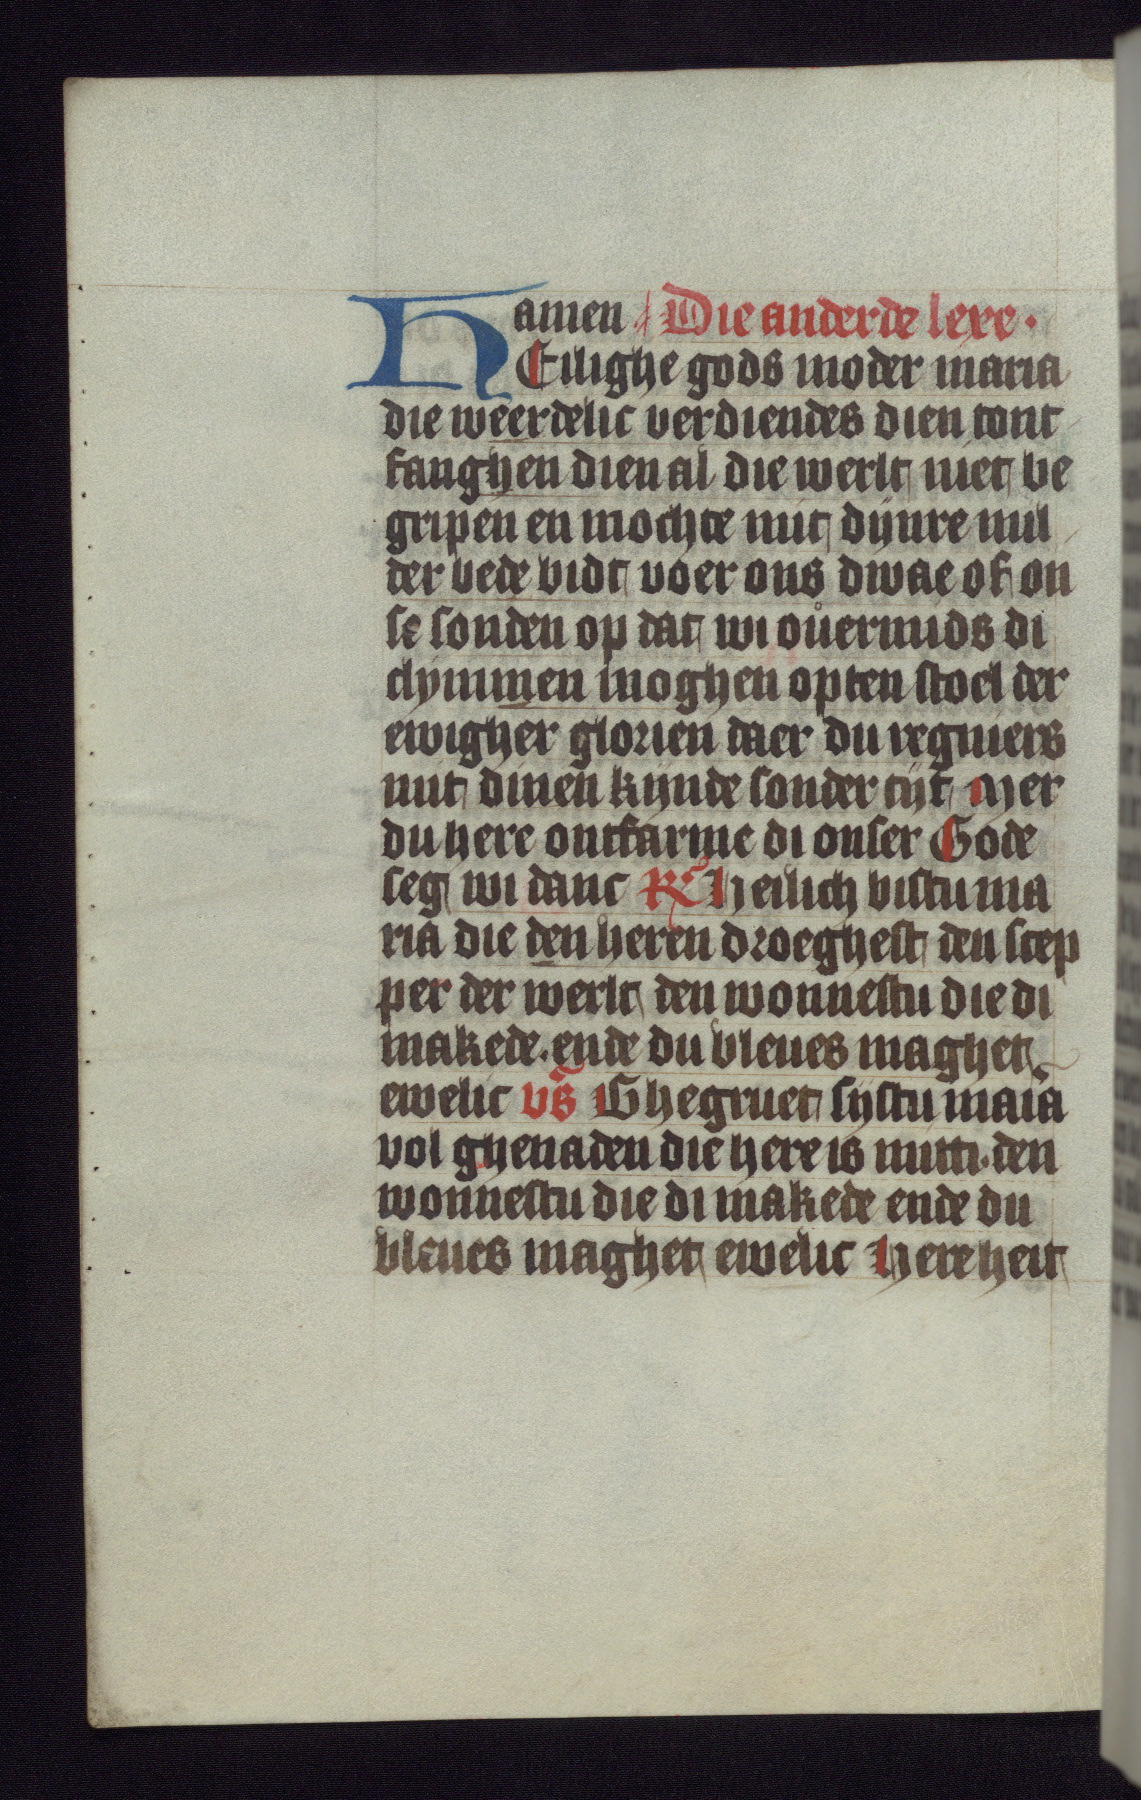 amen Die anderde lexe.
HEilighe gods moder maria
die weerdelic verdiendes dien tont
fanghen dien al die werlt niet be
gripen en mochte mit dijnre mil
der bede bidt voer ons dwae of on
se sonden op dat wi ouermids di
clymmen moghen opten stoel der
ewigher glorien daer du regniers
mit dinen kijnde sonder tijt Mer
du here ontfarme di onser Gode
seg wi danc R Heilich bistu ma
ria die den heren droeghest den scep
per der werlt den wonnestu die di
makede. ende du bleues maghet
ewelic vs Ghegruet sijstu maia
vol ghenaden die here is mitti. den
wonnestu die di makede ende du
bleues maghet ewelic Here heit